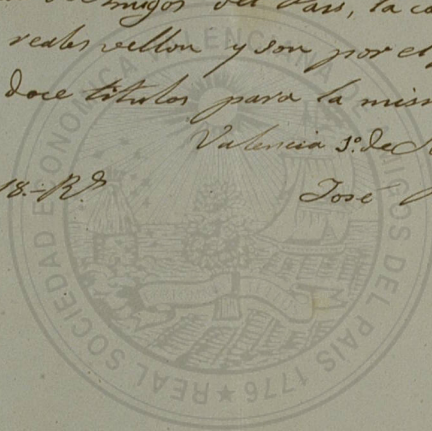 Amigos del País, la
reales vellon y son por el
doce titulos para la
Valencia 1º. de
18.- Rs
José
REAL SOCIEDAD ECONOMICA VALENCIANA DE AMIGOS DEL PAIS 1776